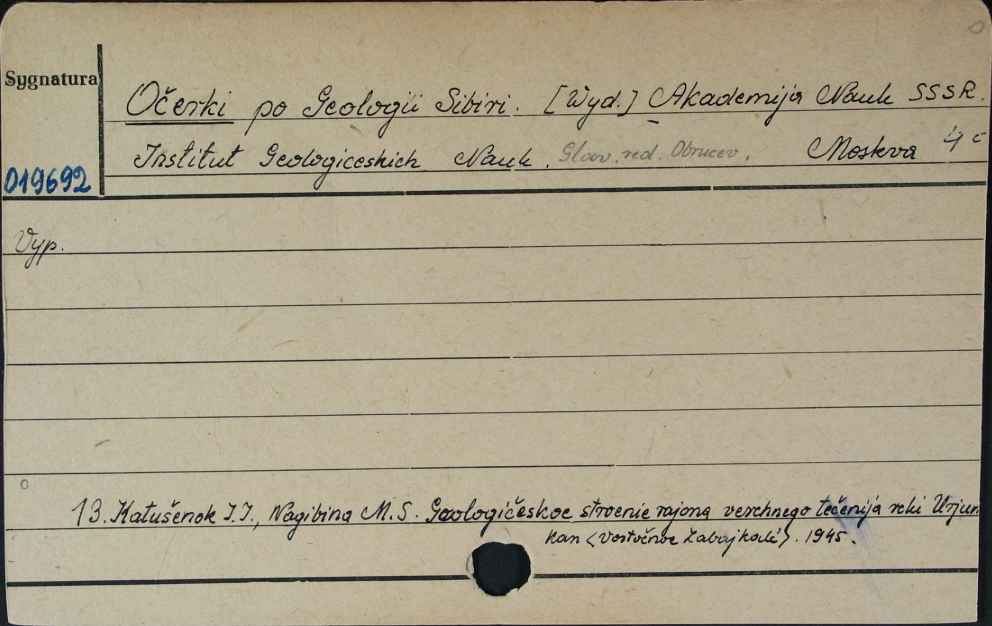 Sygnatura
Očerki po Geologii Sibiri. [Wyd.] Akademija Nauk SSSR.
Institut Geologiceskich Nauk. Glav. red. Obrucev. Moskva 4°
019692
Vyp.
13. Katušenok I.I., Nagibina M.S. Geologičeskoe stroenie rajona verchnego tečenija reki Urjum
kan (Vostočnoe Zabajkal'e). 1945.